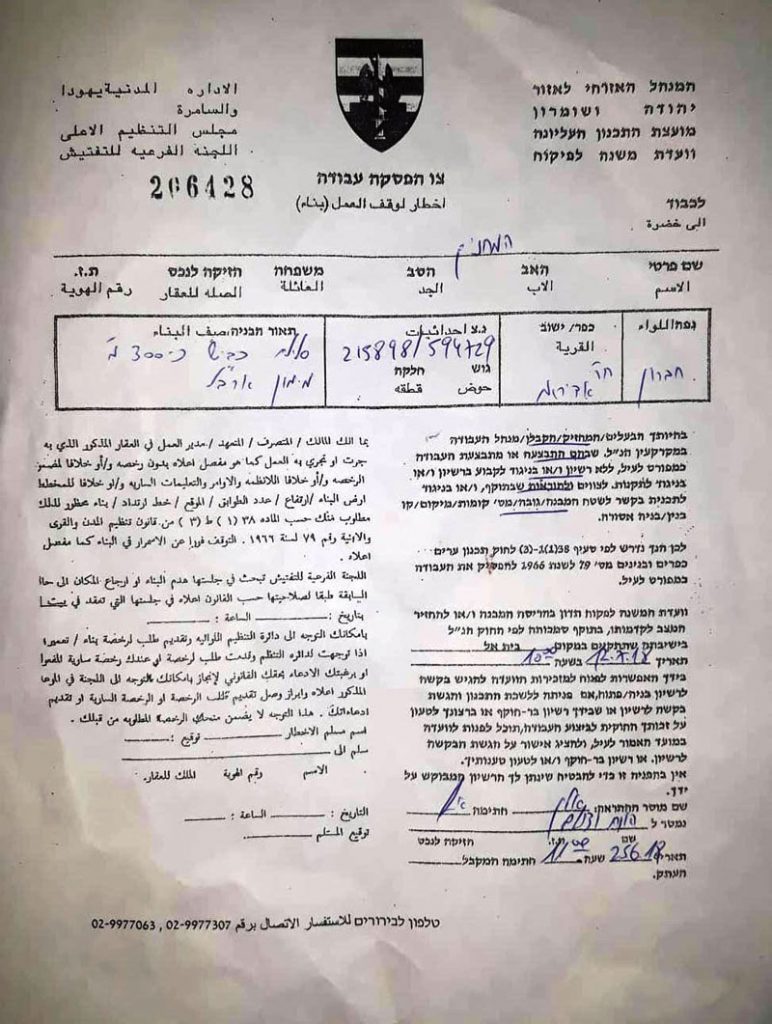 המנהל האזרחי לאזור
יהודה ושומרון
מועצת התכנון העליונה
וועדת משנה לפיקוח
الاداره المدنية يهودا
والسامرة
مجلس التنظيم الاعلى
اللجنه الفرعيه للتفتيش
206428
צו הפסקה עבודה
اخطار لوقف العمل (بناء)
לכבוד
الى حضرة
המחזיק
שם פרטי האב הסב משפחה חזיקה לנכס ת.ז.
الاسم الاب الجد العائلة الصله للعقار رقم الهوية
נפח اللواء כפר/ ישוב נ.צ احداثيات תאור הבניה صف البناء
القرية
חברון 215898/594729 סלילת כביש כ-300 מ'
גוש חלקה
حوض قطقه
בחיותך הבעלים/המחזיק/הקבלן/מנהל העבודה
במקרקעין הנ"ל. שבהם התבצעה או מתבצעת העבודה
כמפורט לעיל, ללא רשיון ו/או בניגוד לקבוע ברשיון ו/או
בניגוד לתקנות. לצווים ולהוראות שבתוקף, ו/או בניגוד
לתכנית בקשר לשטח המבנה/גובה/מס' קומות/מיקום/קו
בנין/בניה אסורה.
לכן הנך נדרש לפי סעיף 38(1)-(3) לחוק תכנון ערים
כפרים ובנינים מס' 79 לשנת 1966 להפסיק את העבודה
כמפורט לעיל.
וועדת המשנה לפקוח תדון בהריסת המבנה ו/או להחזיר
המצב לקדמותו, בתוקף סמכותה לפי החוק הנ"ל
בישיבתה שתתקיים במקום בית אל
תאריך 12.7.18 בשעה 10:00
בידך האפשרות לפנות למזכירות הוועדה להגיש בקשה
לרשיון בניה/פתוח, אם פנית ללשכת התכנון והגשת
בקשה לרשיון או שבידך רשיון בר-תוקף או ברצונך לטעון
על זכותך החוקית לביצוע העבודה, תוכל לפנות לוועדה
במועד האמור לעיל, ולהציג אישור על הגשת הבקשה
לרשיון. או רשיון בר-תוקף ו/או לטעון טענותיך.
אין בהפניה זו כדי להבטיח שינתן לך הרשיון המבוקש על
ידך.
שם מוסר ההתראה: חתימה
נמסר ל
שם ת.ז. חזיקה לנכס
תאריך 25.6.18 שעה 11:00 חתימה המקבל
העתק.
بما انك المالك / المتصرف / المتعهد / مدير العمل في العقار المذكور الذي به
جرت او تجري به العمل كما هو مفصل اعلاه بدون رخصه و/أو خلافا لمضمون
الرخصه و/أو خلافا للانظمه والاوامر والتعليمات الساريه و/او خلافا للمخطط
ارض البناء /ارتفاع / عدد الطوابق / الموقع / خط ارتداد / بناء محظور لذلك
مطلوب منك حسب الماده ٣٨ (١) ط (٣) من قانون تنظيم المدن والقرى
والابنية رقم ٧٩ لسنة ١٩٦٦ . التوقف فورا عن الاسمرار في البناء كما مفصل
اعلاه .
اللجنة الفرعية للتفتيش تبحث في جلستها هدم البناء او ارجاع المكان الى حالة
السابقة طبقا لصلاحيتها حسب القانون اعلاه في جلستها التي تعقد في
بتاريخ: الساعة :
بامكانك التوجه الى دائرة التنظيم اللوائيه وتقديم طلب لرخصة بناء / تعمير
اذا توجهت لدائره التنظم وقدمت طلب لرخصة او عندك رخصة سارية المفعول
او برغبتك الادعاء بحقك القانوني لإنجاز بإمكانك بالتوجه الى اللجنة في الموعد
المذكور اعلاه وابراز وصل تقديم طلب الرخصة او الرخصة السارية او تقديم
ادعاءاتك . هذا التوجه لا يضمن منحك الرخصة المطلوبه من قبلك .
اسم مسلم الاخطار توقيع :
سلم الى
الاسم رقم الهوية الملك للعقار.
التاريخ : الساعة :
توقيع المستلم
טלפון לבירורים للاستفسار الاتصال برقم 02-9977307 , 02-9977063